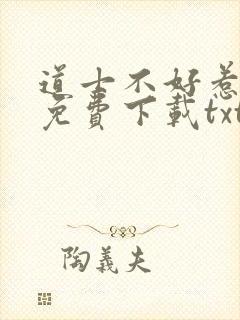 道士不好惹
免費下載txt
陶義夫